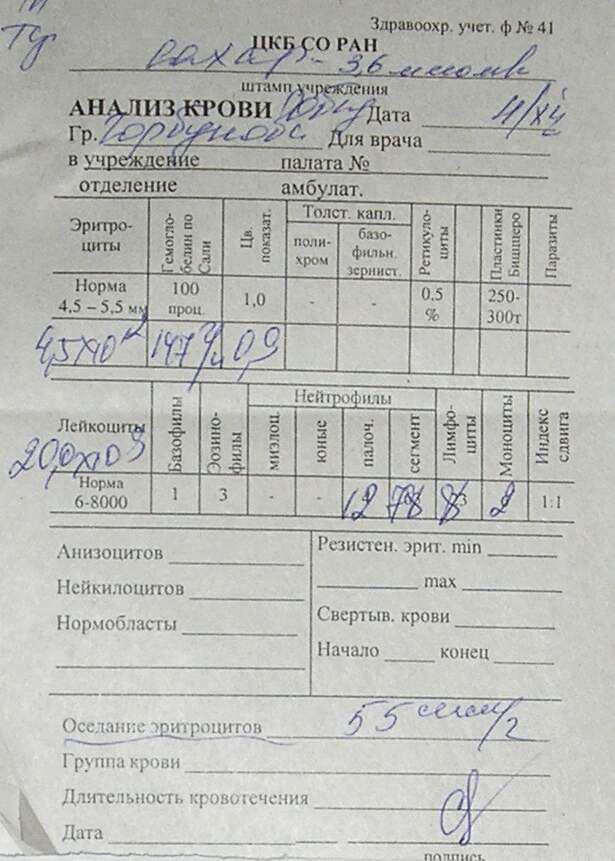 Здравоохр. учет. ф № 41
ЦКБ СО РАН
сахар - 3,6 ммоль
штамп учреждения
АНАЛИЗ КРОВИ Дата 4/XII
Гр. Горбунова Для врача
в учреждение палата №
отделение амбулат.
Эритро-циты Гемогло-белин по Сали Цв. показат. Толст. капл. Ретикуло-циты Пластинки Бищцеро Паразиты
поли-хром базо-фильн. зернист.
Норма 4,5 – 5,5 мм 100 проц. 1,0 - - 0,5 % 250-300т
4,5х10¹² 147 г/л 0,9
Лейкоциты Базофилы Эозино-филы Нейтрофилы Лимфо-циты Моноциты Индекс сдвига
миэлоц. юные палоч. сегмент
20,0х10⁹
Норма 6-8000 1 3 - - 12 78 8 2 1:1
Анизоцитов Резистен. эрит. min
Нейкилоцитов max
Нормобласты Свертыв. крови
Начало конец
Оседание эритроцитов 55 мм/г
Группа крови
Длительность кровотечения
Дата
подпись